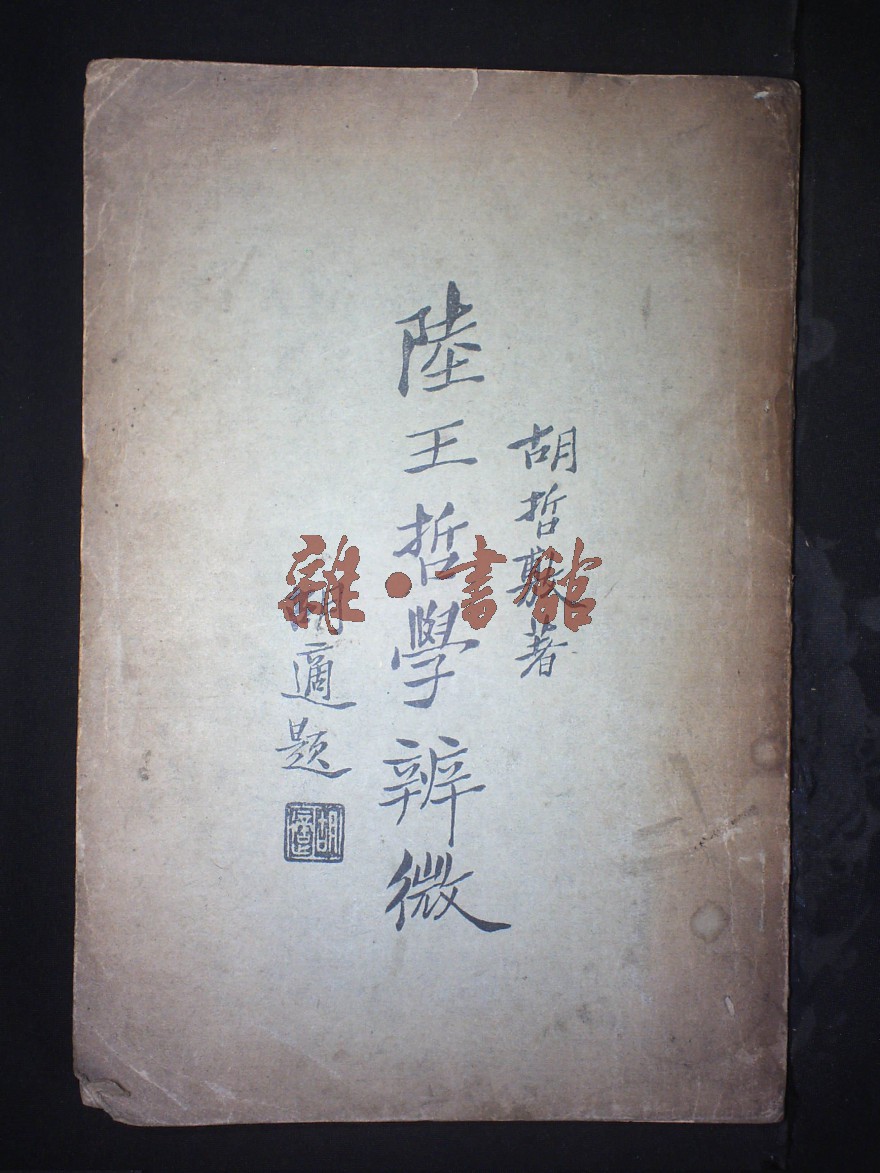 胡哲敷著
陸王哲學辨微
胡適題
胡適
雜·書館